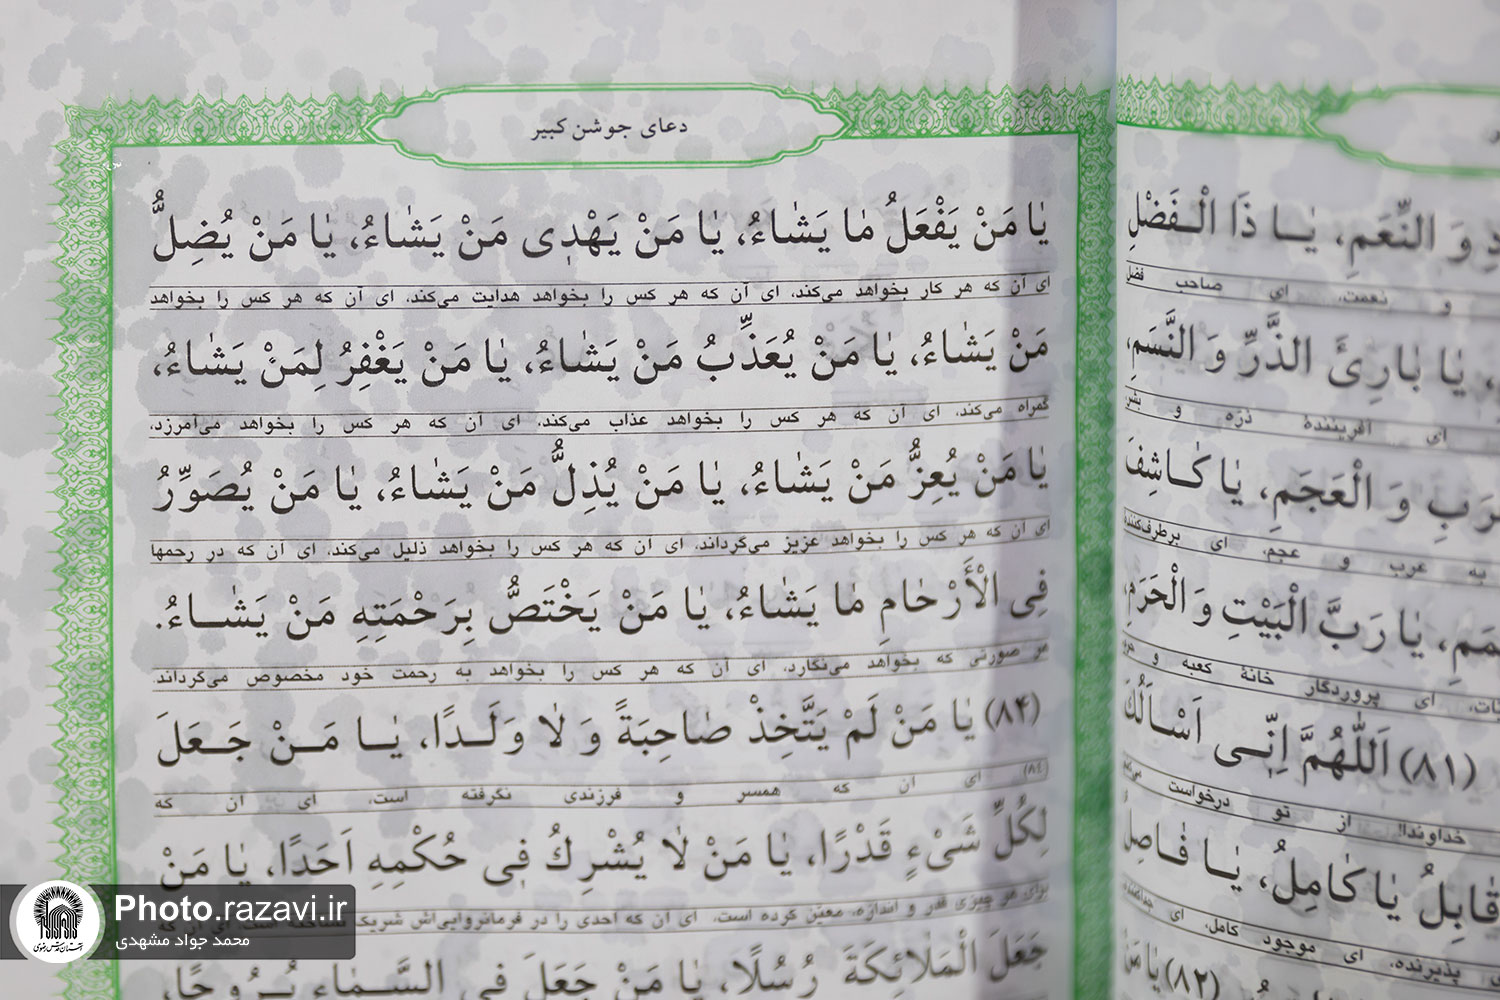 دعای جوشن کبیر
یٰا مَنْ یَفْعَلُ مٰا یَشٰاءُ، یٰا مَنْ یَهْدٖی مَنْ یَشٰاءُ، یٰا مَنْ یُضِلُّ
ای آن که هر کار بخواهد می‌کند، ای آن که هر کس را بخواهد هدایت می‌کند، ای آن که هر کس را بخواهد
مَنْ یَشٰاءُ، یٰا مَنْ یُعَذِّبُ مَنْ یَشٰاءُ، یٰا مَنْ یَغْفِرُ لِمَنْ یَشٰاءُ،
گمراه می‌کند، ای آن که هر کس را بخواهد عذاب می‌کند، ای آن که هر کس را بخواهد می‌آمرزد،
یٰا مَنْ یُعِزُّ مَنْ یَشٰاءُ، یٰا مَنْ یُذِلُّ مَنْ یَشٰاءُ، یٰا مَنْ یُصَوِّرُ
ای آن که هر کس را بخواهد عزیز می‌گرداند، ای آن که هر کس را بخواهد ذلیل می‌کند، ای آن که در رحمها
فِی الْأَرْحٰامِ مٰا یَشٰاءُ، یٰا مَنْ یَخْتَصُّ بِرَحْمَتِهِ مَنْ یَشٰاءُ.
هر صورتی که بخواهد می‌نگارد، ای آن که هر کس را بخواهد به رحمت خود مخصوص می‌گرداند
(۸۴) یٰا مَنْ لَمْ یَتَّخِذْ صٰاحِبَةً وَ لٰا وَلَدًا، یٰا مَنْ جَعَلَ
(۸۴) ای آن که همسر و فرزندی نگرفته است، ای آن که
لِکُلِّ شَیْءٍ قَدْرًا، یٰا مَنْ لٰا یُشْرِكُ فٖی حُکْمِهِ اَحَدًا، یٰا مَنْ
برای هر چیزی قدر و اندازه، معیّن کرده است، ای آن که احدی را در فرمانروایی‌اش شریک
جَعَلَ الْمَلٰائِکَةَ رُسُلًا، یٰا مَنْ جَعَلَ فِی السَّمٰاءِ بُرُوجًا،
وَ النِّعَمِ، یٰا ذَا الْفَضْلِ
و نعمت، ای صاحب فضل
یٰا بٰارِئَ الذَّرِّ وَ النَّسَمِ،
ای آفرینندهٔ ذرّه و بشر،
وَ الْعَجَمِ، یٰا کٰاشِفَ
به عرب و عجم، ای برطرف‌کنندهٔ
یٰا رَبَّ الْبَیْتِ وَ الْحَرَمِ،
ای پروردگار خانهٔ کعبه و
(۸۱) اَللّٰهُمَّ اِنّٖی اَسْاَلُكَ
خداوندا! از تو درخواست
قٰابِلُ یٰا کٰامِلُ، یٰا فٰاصِلُ
پذیرنده، ای موجود کامل، ای
(۸۲) یٰا مَنْ
Photo.razavi.ir
محمد جواد مشهدی